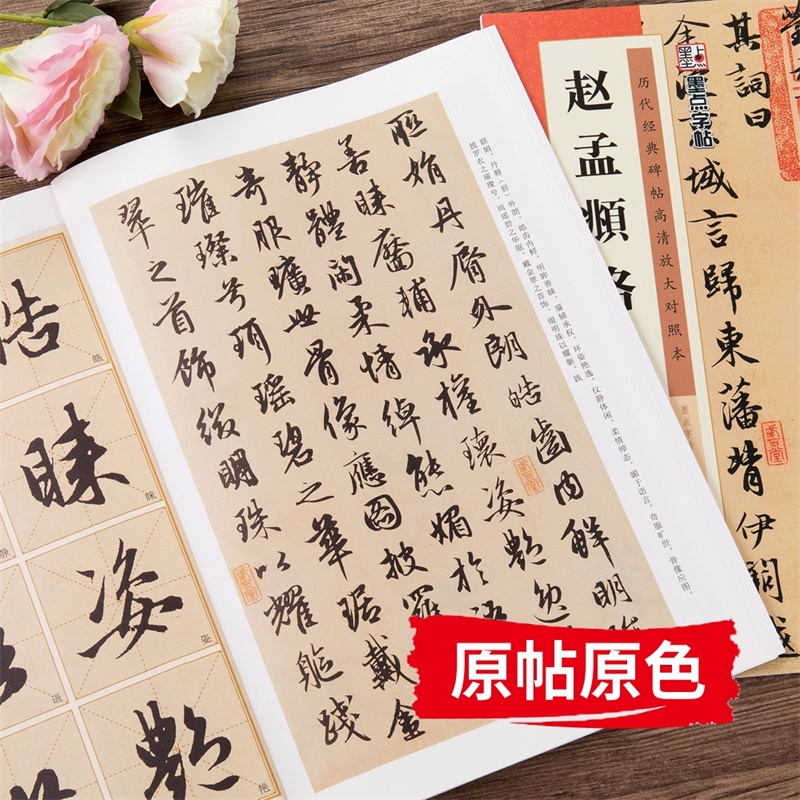 其詞曰
余從京域言歸東藩背伊闕
墨点字帖
历代经典碑帖高清放大对照本
赵孟頫洛
墨点字
联娟。丹唇（脣）外朗，皓齿内鲜，明眸善睐，靥辅承权。环姿艳逸，仪静体闲。柔情绰态，媚于语言。奇服旷世，骨像应图。
披罗衣之璀璨兮，珥瑶碧之华琚。戴金翠之首饰，缀明珠以耀躯。践
聯娟丹脣外朗皓齒内鮮明
善睞靨輔承權瓌姿艷逸
靜體閑柔情綽態媚於語
奇服曠世骨像應圖披羅
璀璨兮珥瑤碧之華琚戴金
翠之首飾綴明珠以耀軀踐
皓
皓
睞
睐
姿
姿
艷
艳
静
语
原帖原色